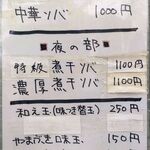 中華ソバ 1000円
■夜の部■
特級煮干ソバ 1100円
濃厚煮干ソバ 1100円
和え玉(味つき替玉) 250円
やまぶき味玉、 150円